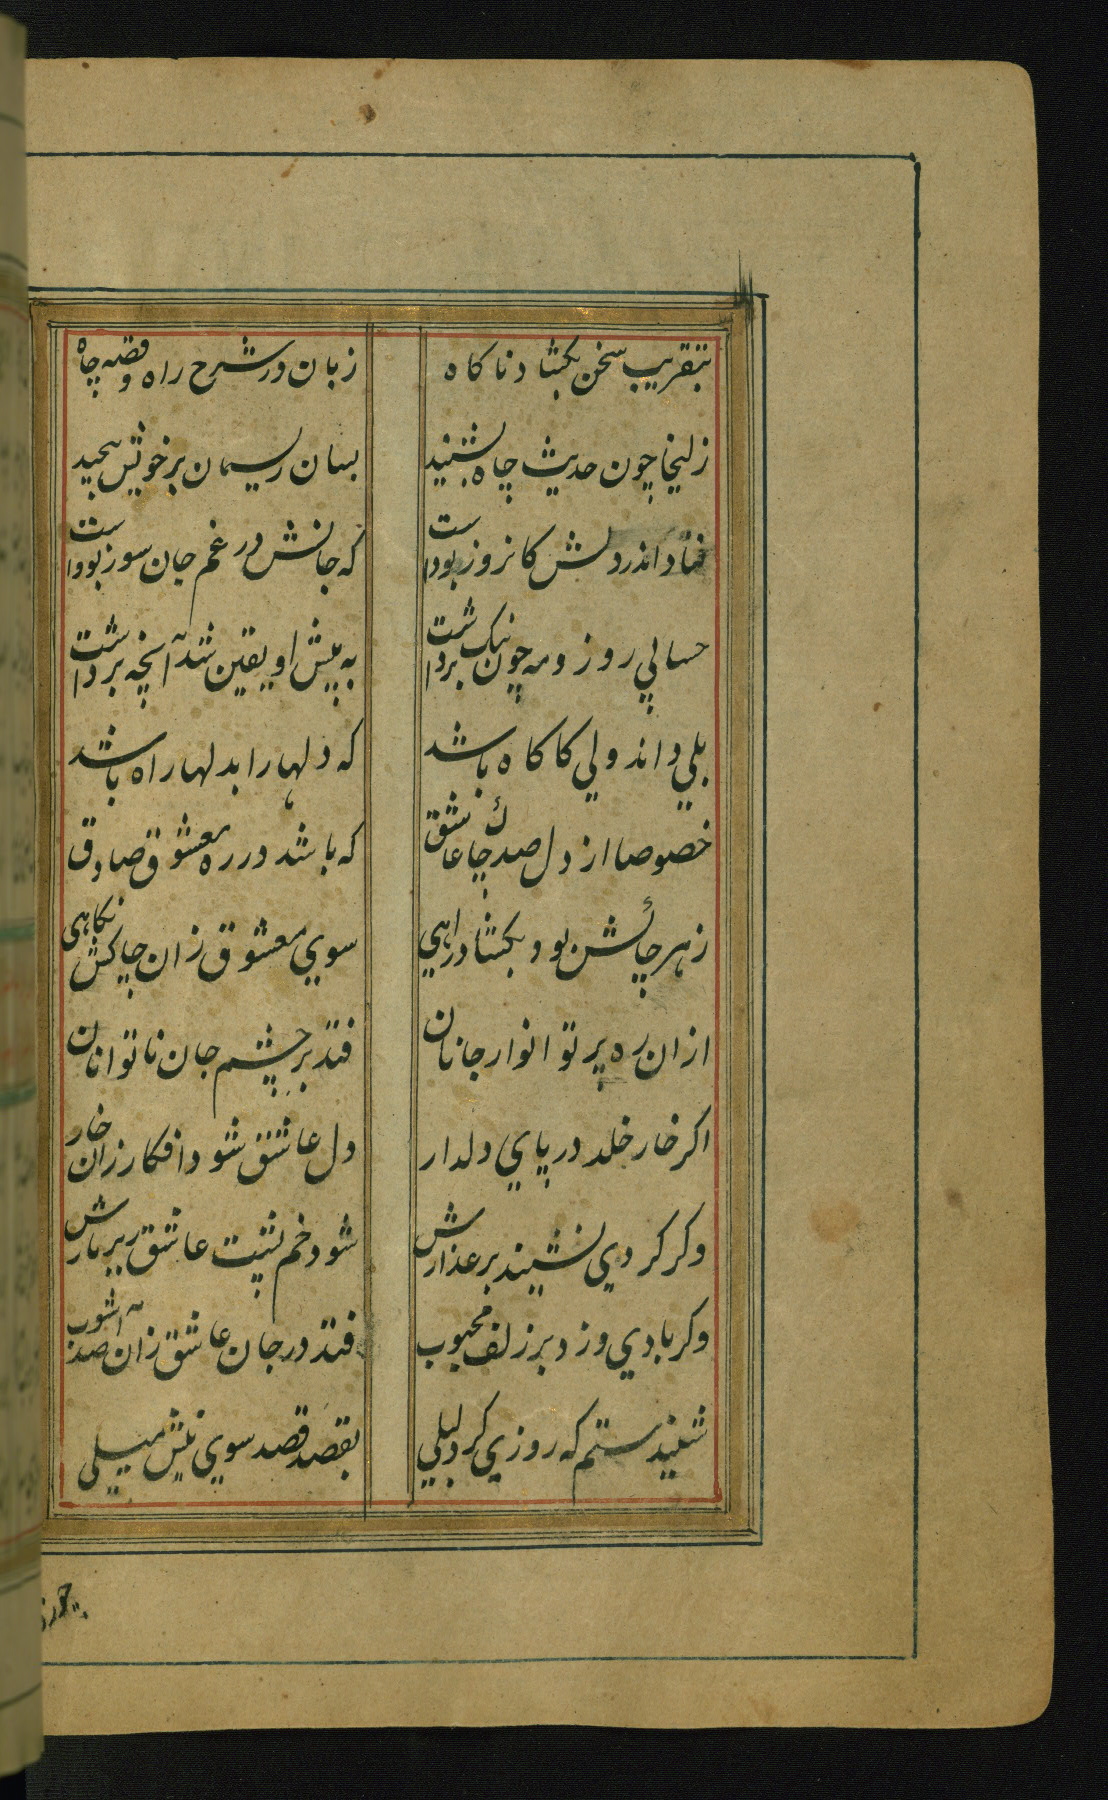 بتقریب سخن بکشاد ناکاه زبان در شرح راه و قصه چاه
زلیخا چون حدیث چاه بشنید بسان ریسمان بر خویش پیچید
فتاد اندر دلش کانروز بودست که جانش در غم جان سوز بودست
حسابی روز و مه چون نیک برداشت به پیش او یقین شد آنچه برداشت
بلی داند ولی کاکاه باشد که دلها را بدلها راه باشد
خصوصا از دل صد چاک عاشق که باشد در ره معشوق صادق
ز هر چاکش بود بکشاد راهی سوی معشوق زان چاکش نکاهی
از ان ره پرتو انوار جانان فتد بر چشم جان ناتوانان
اکر خار خلد در پای دلدار دل عاشق شود افکار زان خار
وکر کردی نشیند بر عذارش شود خم پشت عاشق زیر بارش
وکر بادی وزد بر زلف محبوب فتد در جان عاشق زان صد آشوب
شنیدستم که روزی کرد لیلی بقصد قصد سوی نیش میلی